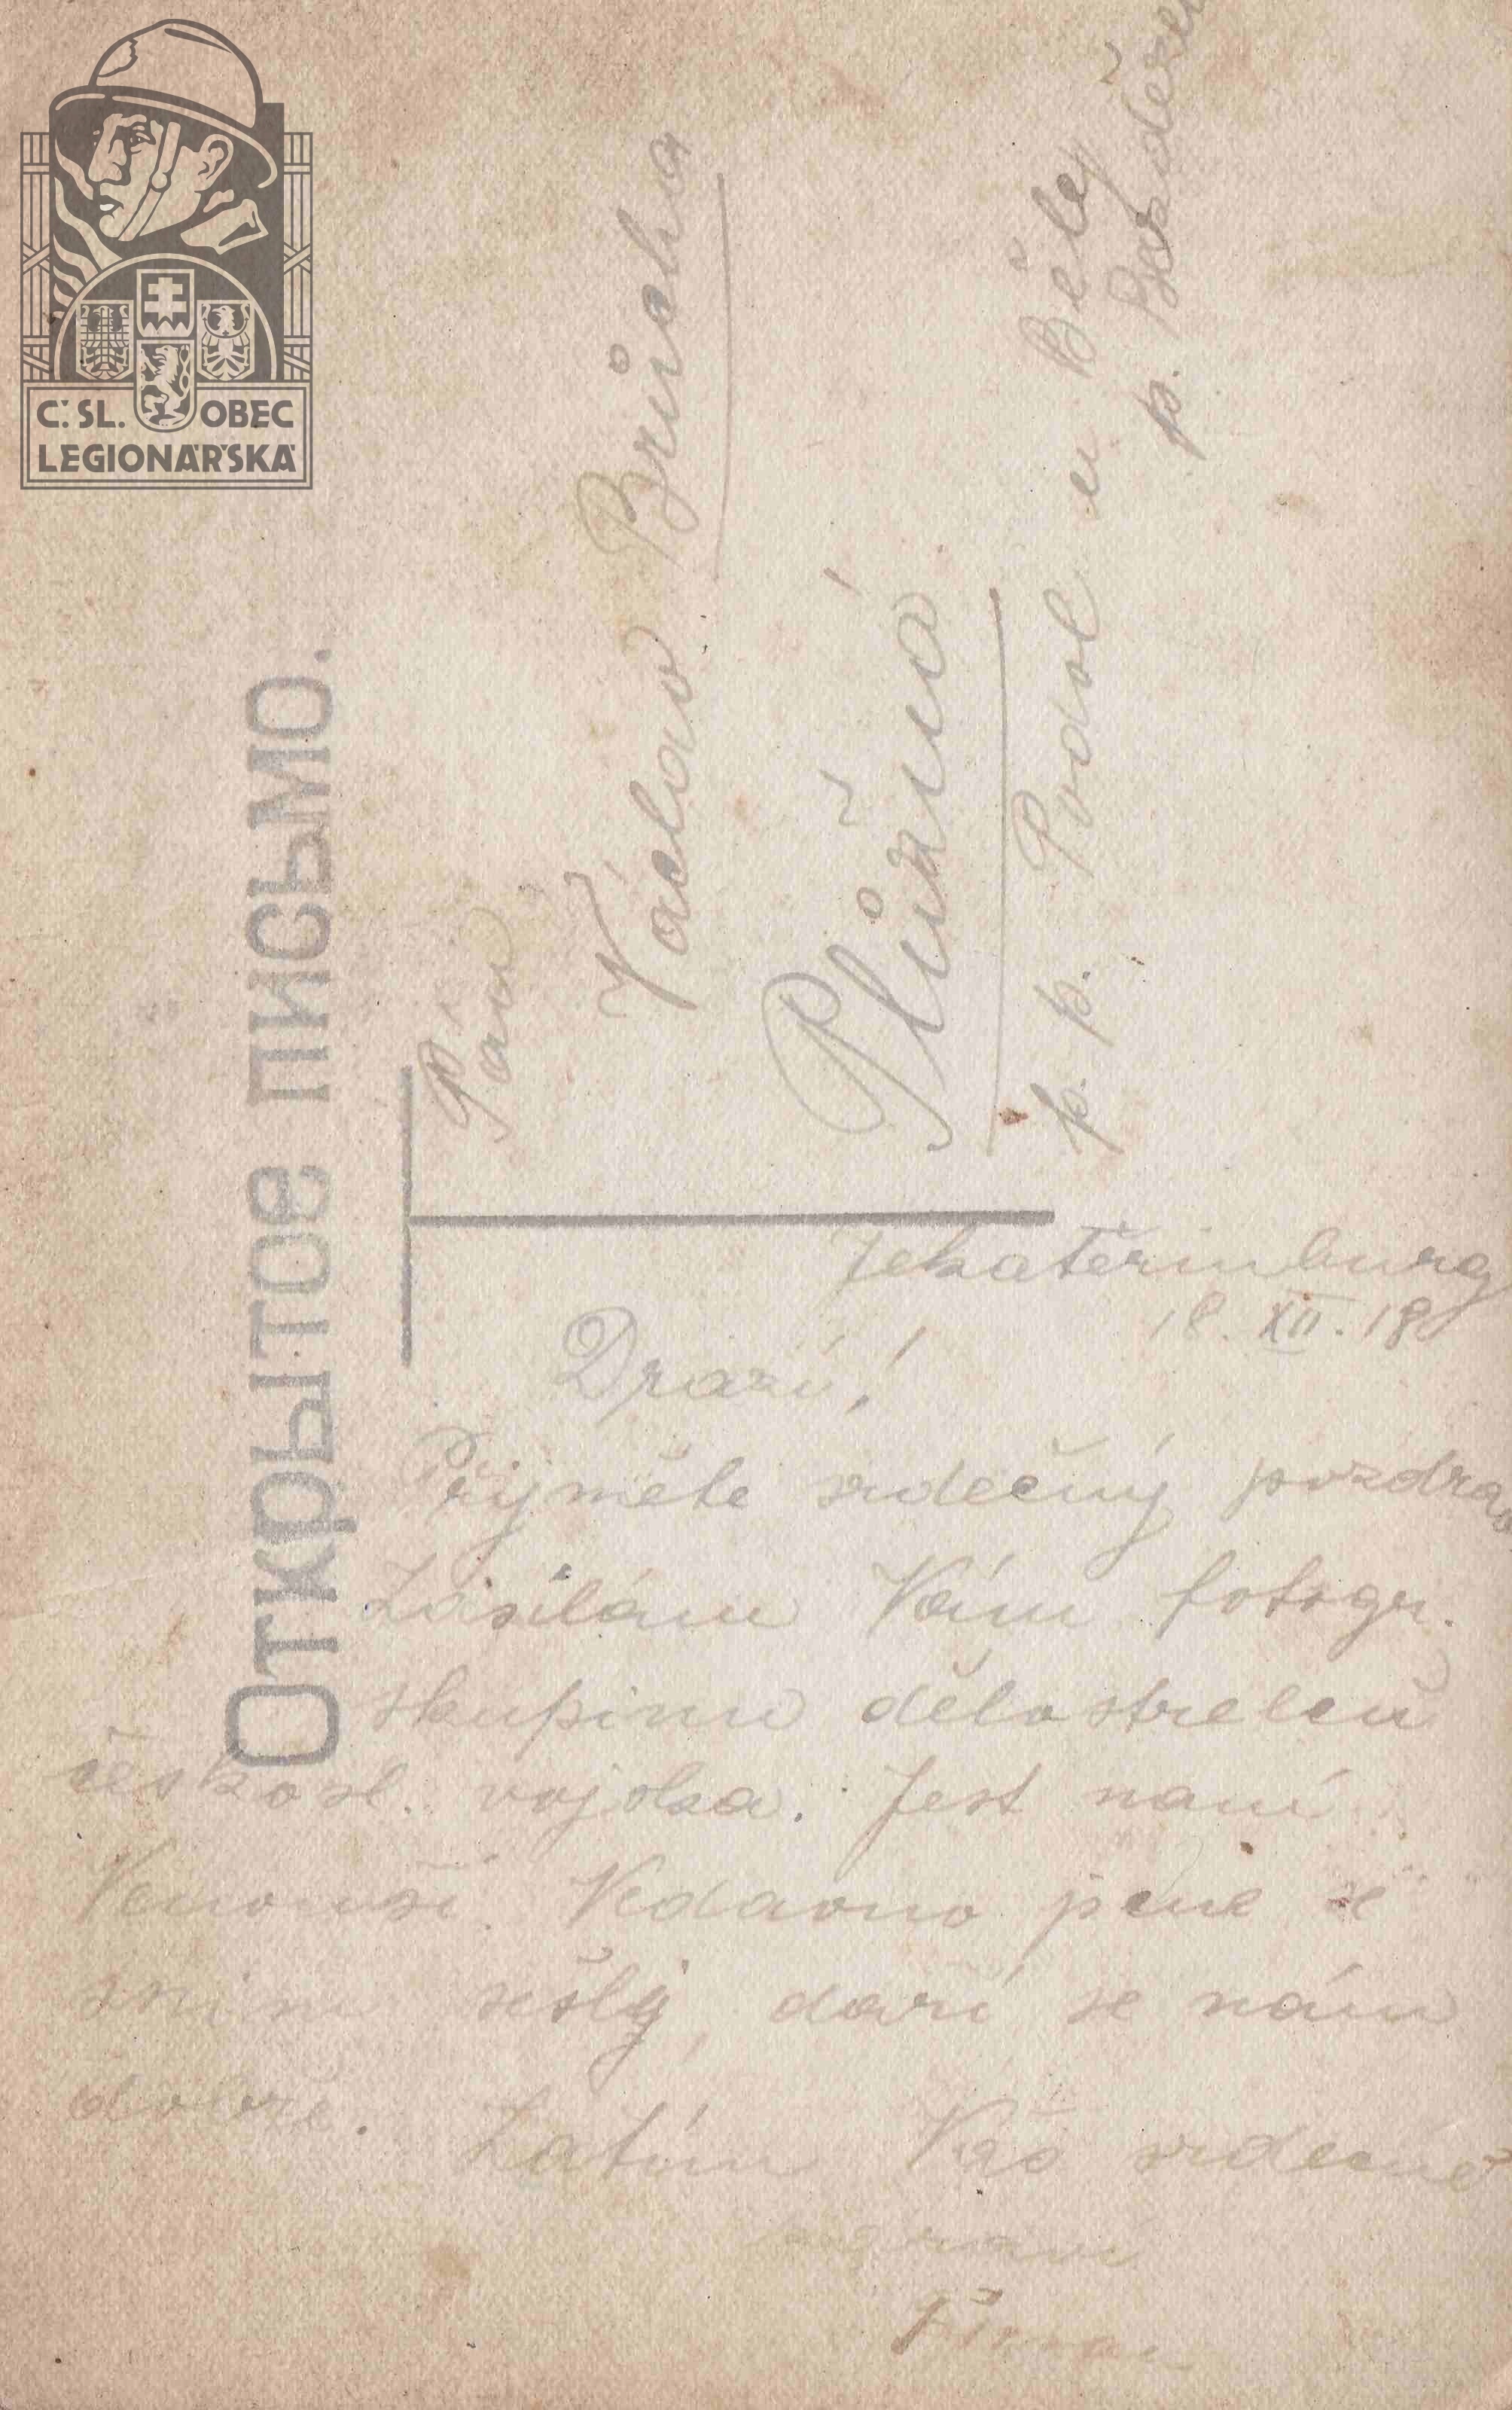 Č. SL. OBEC
LEGIONÁŘSKÁ
Открытое письмо.
Pán
Václav Brůcha
Plužná
p. p. Podol u Bělej
p. Bezdězem
Jekatěrinburg
18. XII. 18
Drazí!
Přijměte srdečný pozdrav
Zasílám Vám fotogr.
skupinu dělostrelcu
českosl. vojska. Jest namí
Nedavno jsme se
snim sešly, daří se nám
dobře. Zatím Vás srdečně